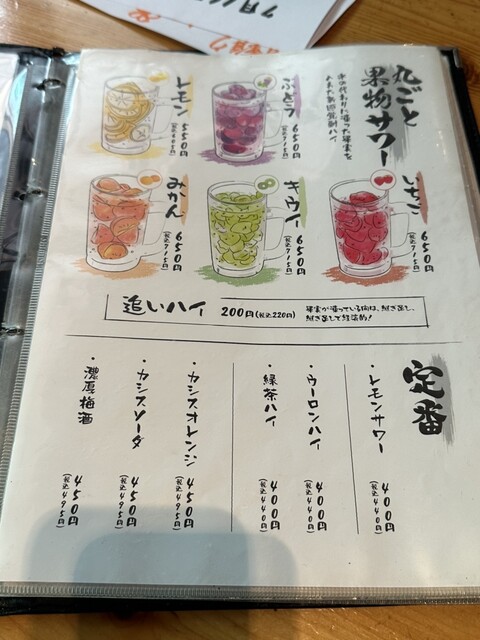 丸ごと
果物サワー
氷の代わりに凍った果実を
入れた新感覚酎ハイ
ぶどう
650円
(税込715円)
レモン
550円
(税込605円)
いちご
650円
(税込715円)
キウイ
650円
(税込715円)
みかん
650円
(税込715円)
追いハイ 200円(税込220円)
果実が凍っている間は、継ぎ足し、
継ぎ足しで経済的!
定番
・レモンサワー 400円
(税込440円)
・ウーロンハイ 400円
(税込440円)
・緑茶ハイ 400円
(税込440円)
・カシスオレンジ 450円
(税込495円)
・カシスソーダ 450円
(税込495円)
・濃厚梅酒 450円
(税込495円)